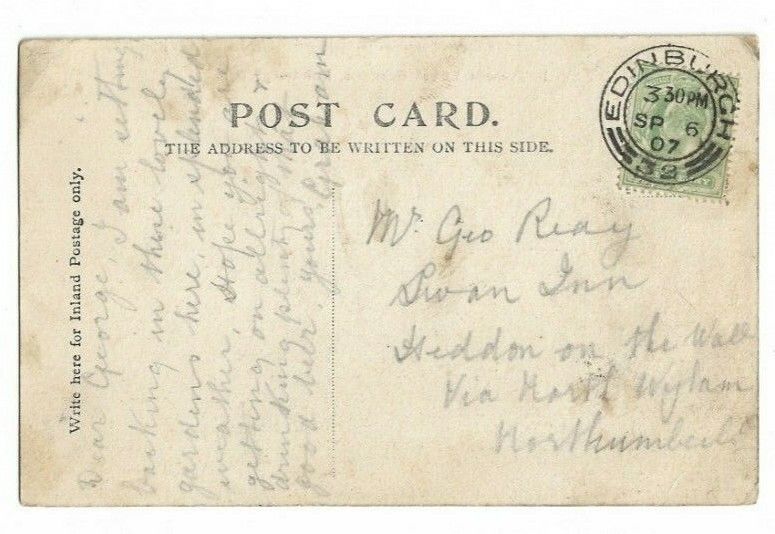 POST CARD.
THE ADDRESS TO BE WRITTEN ON THIS SIDE.
Write here for Inland Postage only.
Dear George, I am sitting
basking in these lovely
gardens here, in splendid
weather, Hope you are
getting on allright &
drinking plenty of that
good beer, yours, Graham
EDINBURGH
3 30PM
SP 6
07
32
Mr. Geo Reay
Swan Inn
Heddon on the Wall
Via North Wylam
Northumberld